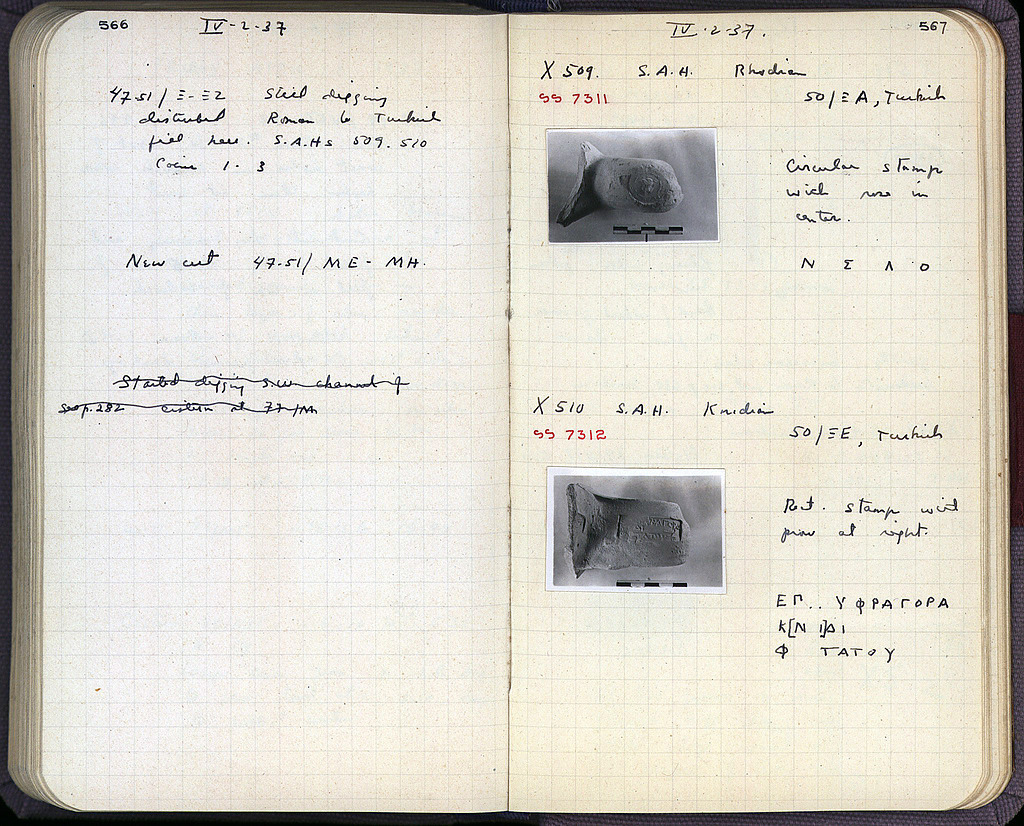 566
IV-2-37
47-51/Ξ-ΞΖ Still digging
disturbed Roman to Turkish
fill here. S.A.Hs 509. 510
Coins 1-3
New cut 47-51/ΜΕ-ΜΗ.
Started digging S.W. channel of
See p. 282 cistern at 77/ΙΑ
IV-2-37.
567
X 509. S.A.H. Rhodian
SS 7311
50/ΞΑ, Turkish
Circular stamp
with rose in
center.
Ν Σ Λ Ο
X 510 S.A.H. Knidian
SS 7312
50/ΞΕ, Turkish
Rect. stamp with
prow at right.
ΕΠ.. ΥΦΡΑΓΟΡΑ
Κ[ΝΙ]ΔΙ
Φ ΤΑΤΟΥ